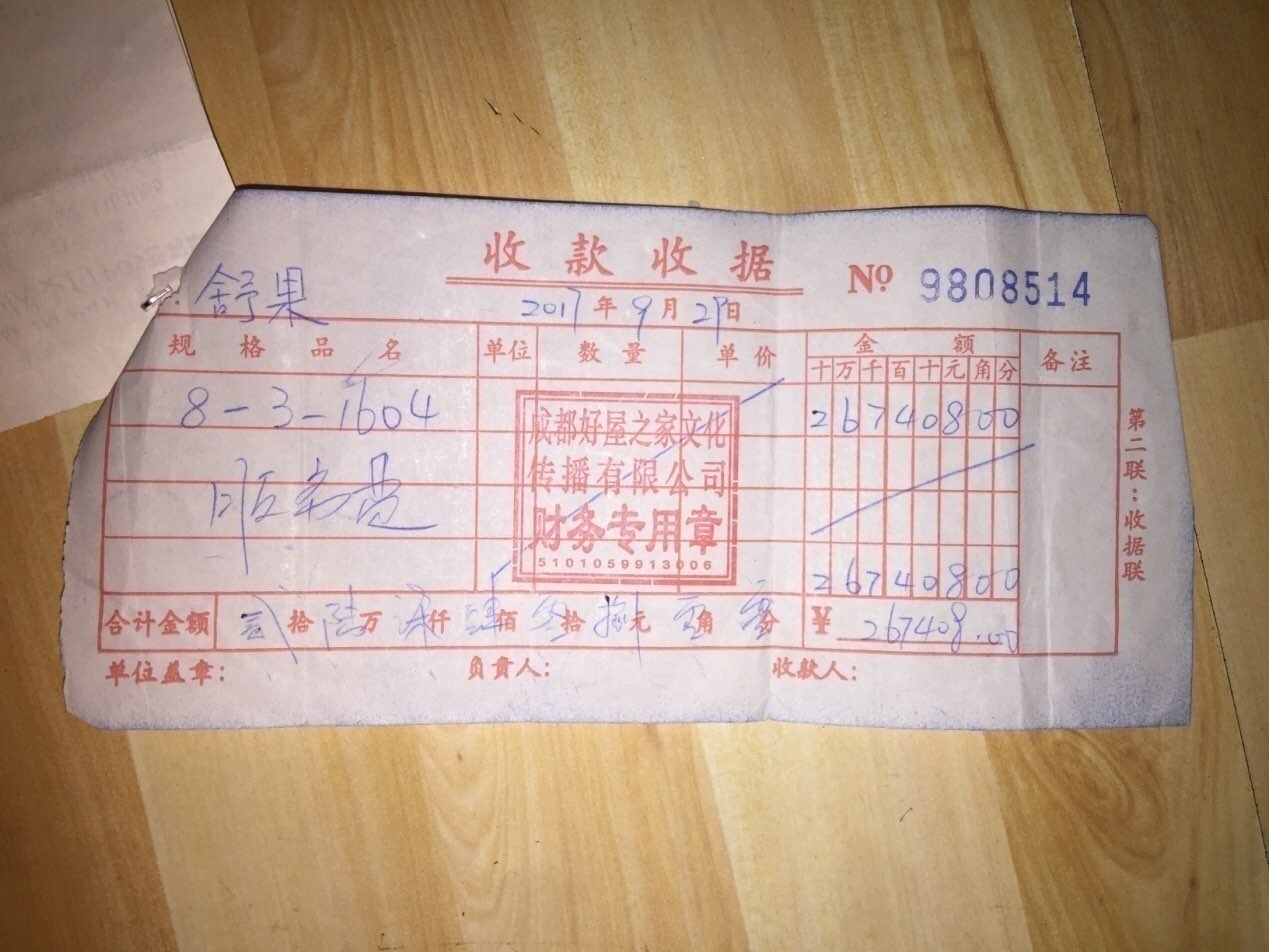 收款收据
№ 9808514
舒果
2017年9月29日
规格品名 单位 数量 单价 金额 备注
十万千百十元角分
8-3-1604 26740800
服务费
成都好屋之家文化
传播有限公司
财务专用章
5101059913006
26740800
合计金额 贰拾陆万柒仟肆佰零拾捌元零角零分 ¥ 267408.00
单位盖章: 负责人: 收款人:
第二联:收据联